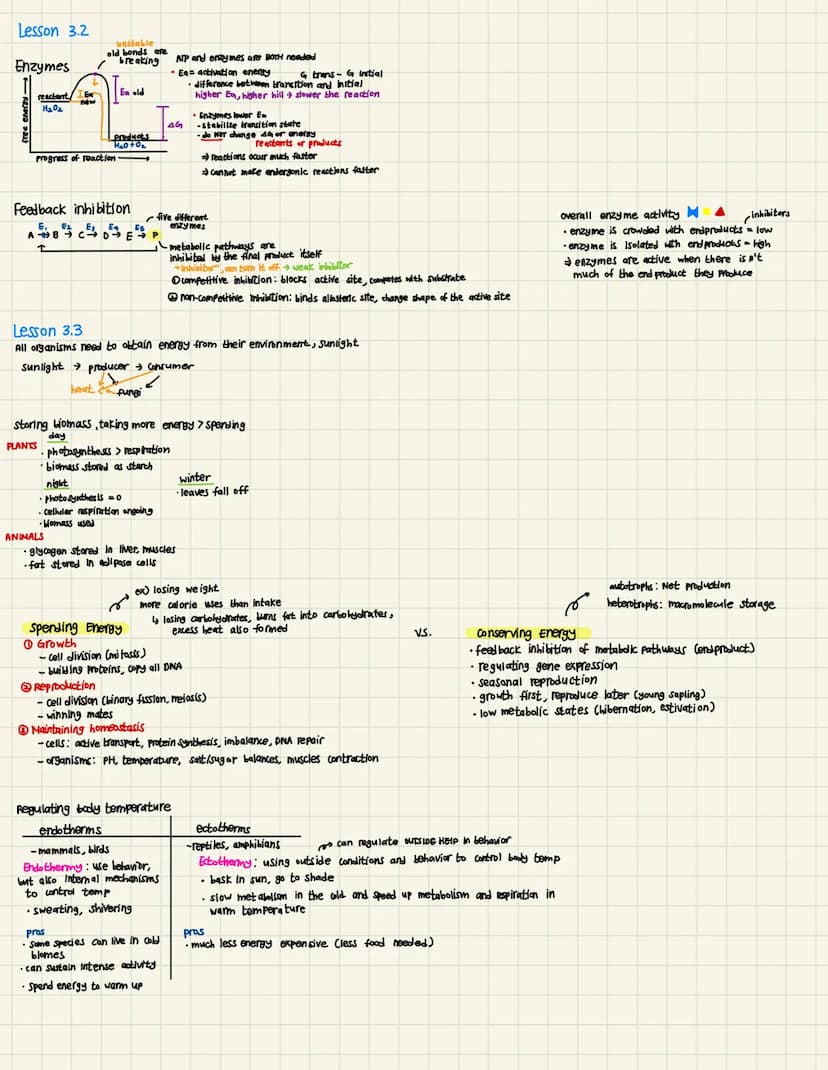 Lesson 3.2
Enzymes
unstable
old bonds are
breaking
free energy →
reactant
H₂O₂
Ea
new
Ea old
ΔG
products
H₂O + O₂
progress of reaction →
ATP and enzymes are BOTH needed
• Ea = activation energy G trans - G initial
• difference between transition and initial
higher Ea, higher hill → slower the reaction
• Enzymes lower Ea
- stabilize transition state
- do NOT change ΔG or energy
reactants or products
⇒ reactions occur much faster
⇒ cannot make endergonic reactions faster
Feedback inhibition
five different
enzymes
E₁ E₂ E₃ E₄ E₅
A → B → C → D → E → P
metabolic pathways are
inhibited by the final product itself
"inhibitor", can turn it off → weak inhibitor
① competitive inhibition: blocks active site, competes with substrate
② non-competitive inhibition: binds allosteric site, change shape of the active site
overall enzyme activity
inhibitors
• enzyme is crowded with endproducts = low
• enzyme is isolated with endproducts = high
⇒ enzymes are active when there isn't
much of the end product they produce
Lesson 3.3
All organisms need to obtain energy from their environment, sunlight
sunlight → producer → consumer
heat fungi
storing biomass, taking more energy > spending
PLANTS
day
• photosynthesis > respiration
• biomass stored as starch
night
• photosynthesis = 0
• cellular respiration ongoing
• biomass used
winter
• leaves fall off
ANIMALS
• glycogen stored in liver, muscles
• fat stored in adipose cells
ex) losing weight
more calorie uses than intake
↳ losing carbohydrates, burns fat into carbohydrates,
excess heat also formed
Spending Energy
① Growth
- cell division (mitosis)
- building proteins, copy all DNA
② Reproduction
- cell division (binary fission, meiosis)
- winning mates
③ Maintaining homeostasis
- cells: active transport, protein synthesis, imbalance, DNA repair
- organisms: PH, temperature, salt/sugar balances, muscles contraction
vs.
autotrophs: Net production
heterotrophs: macromolecule storage
Conserving Energy
• feedback inhibition of metabolic pathways (endproduct)
• regulating gene expression
• seasonal reproduction
• growth first, reproduce later (young sapling)
• low metabolic states (hibernation, estivation)
Regulating body temperature
endotherms
- mammals, birds
Endothermy: use behavior,
but also internal mechanisms
to control temp
• sweating, shivering
pros
• some species can live in cold
biomes
• can sustain intense activity
• spend energy to warm up
ectotherms
- reptiles, amphibians
can regulate OUTSIDE HELP in behavior
Ectothermy: using outside conditions and behavior to control body temp
• bask in sun, go to shade
• slow metabolism in the cold and speed up metabolism and respiration in
warm temperature
pros
• much less energy expensive (less food needed)